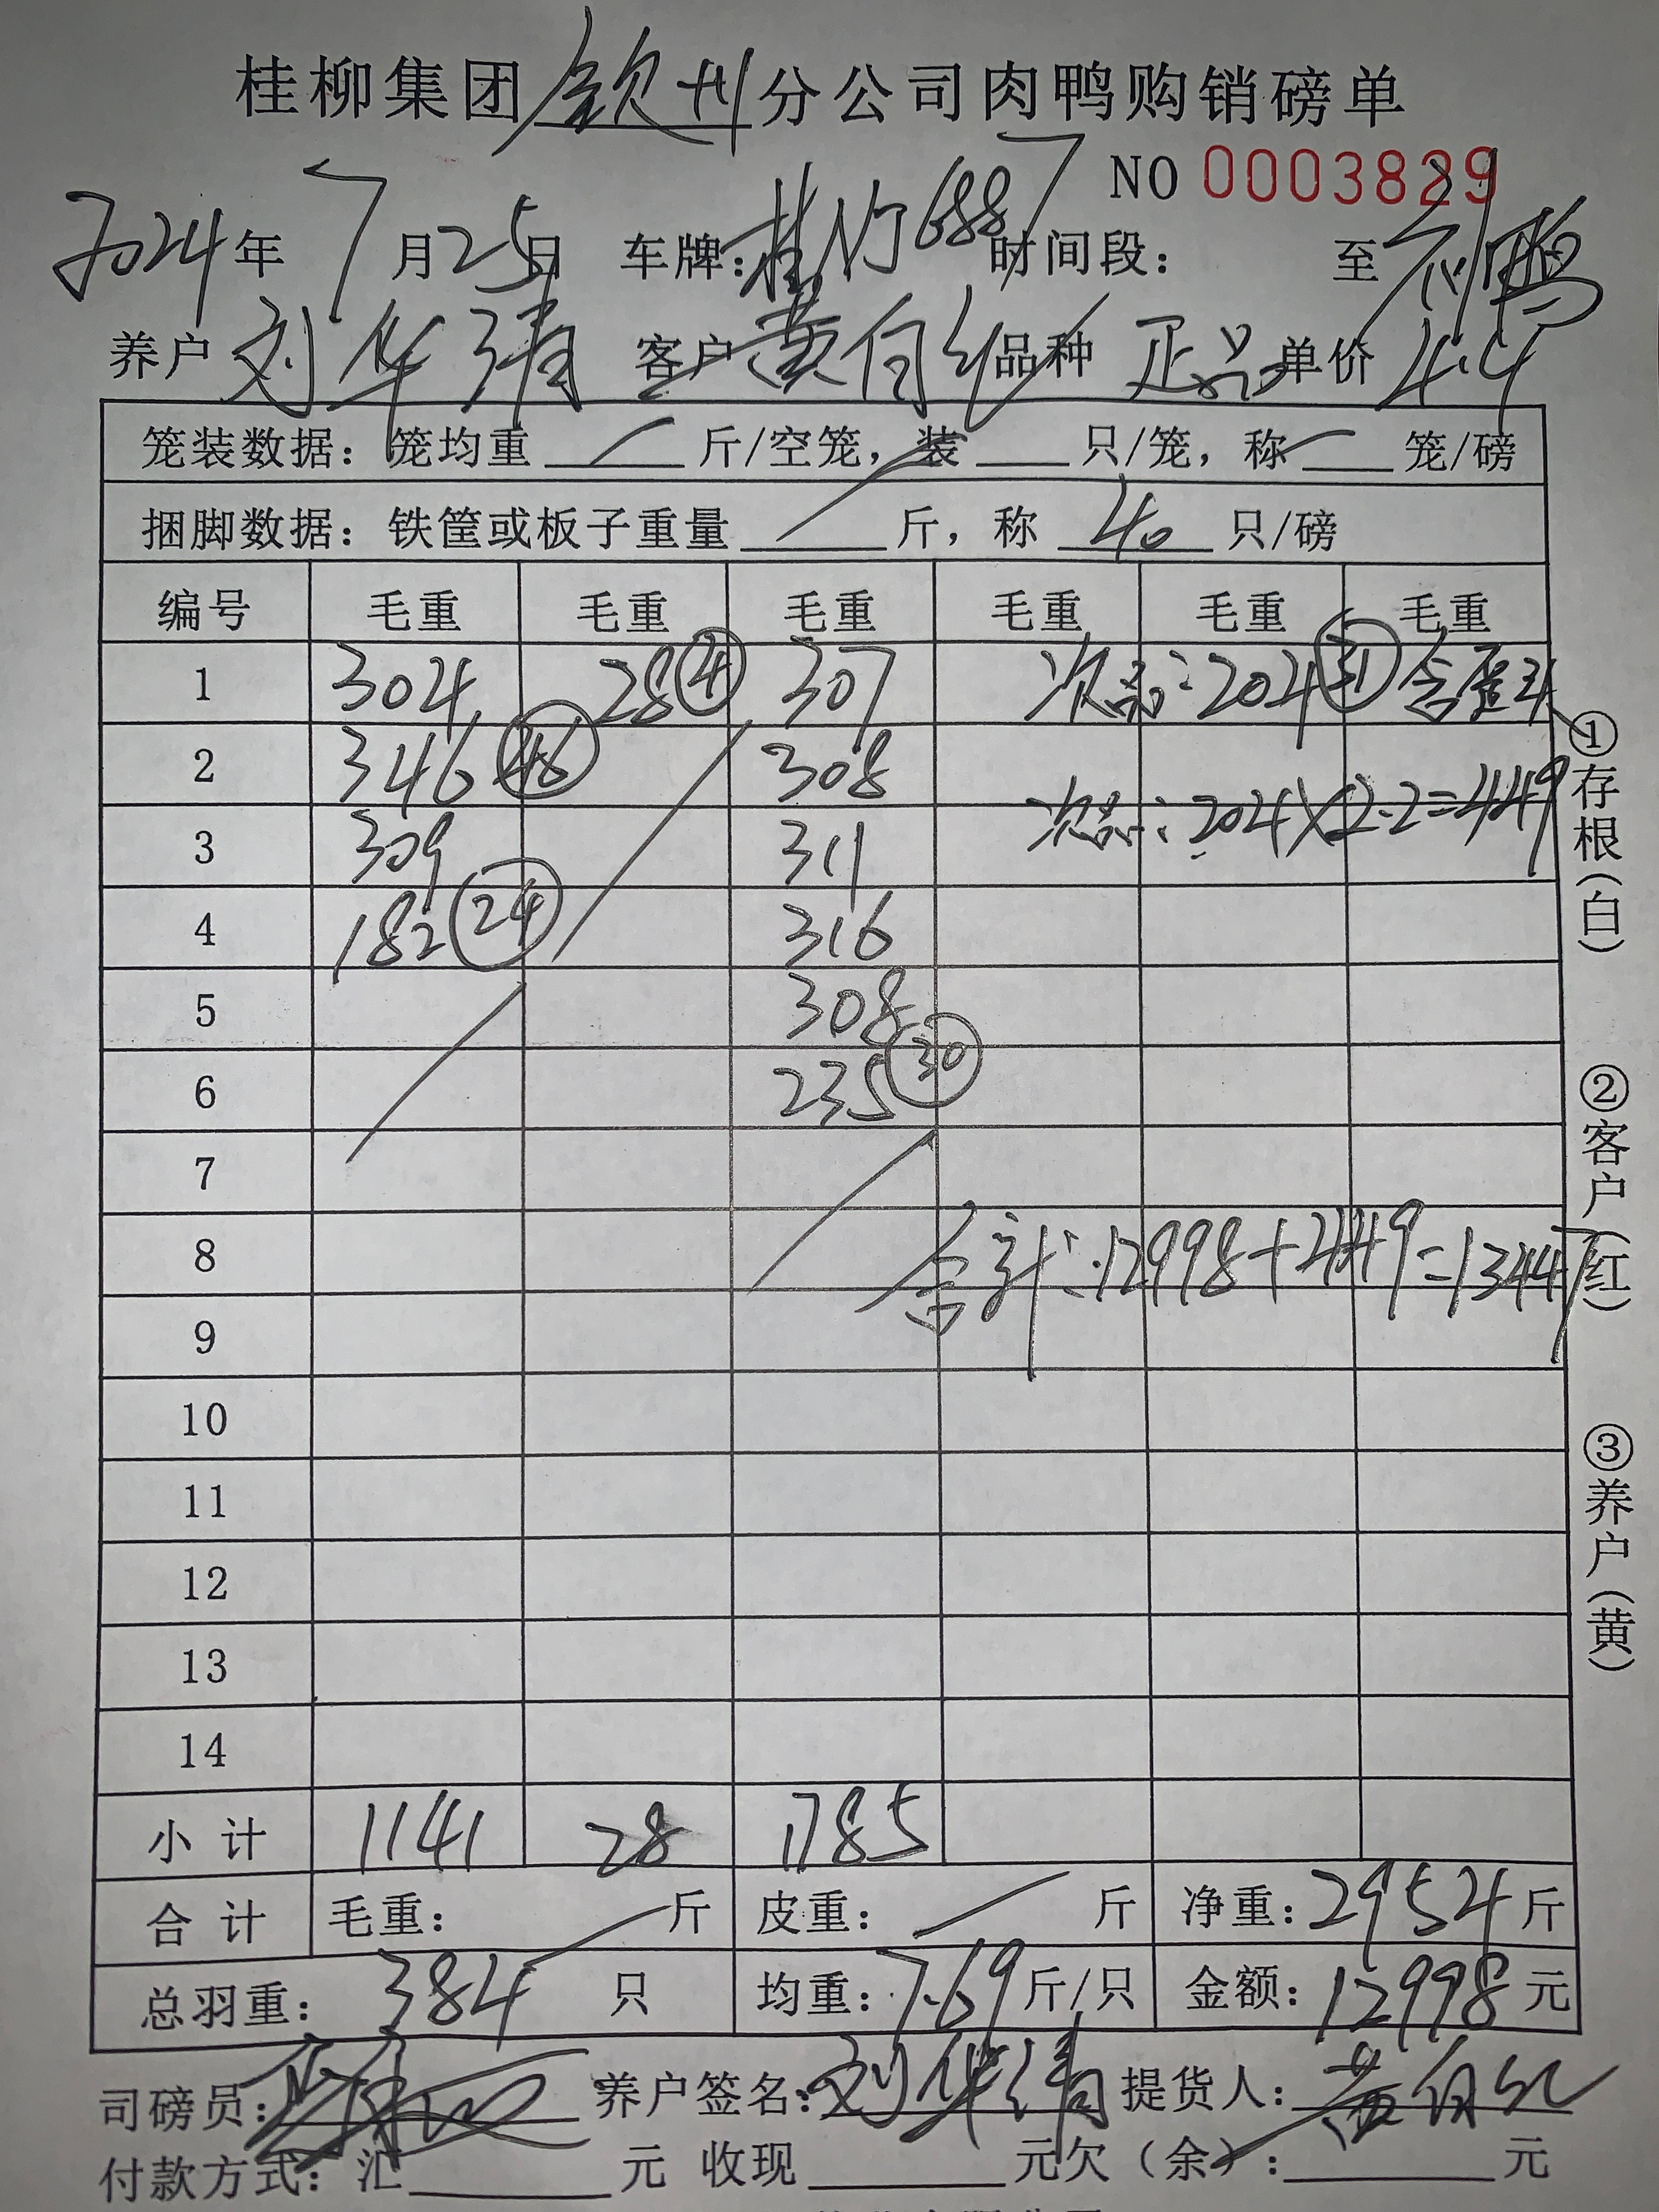 桂柳集团钦州分公司肉鸭购销磅单
NO 0003829
2024年7月25日 车牌:桂N 6887 时间段: 至 刘鹏
养户 刘华清 客户 黄自红 品种 正品 单价 4.4
笼装数据: 笼均重 斤/空笼, 装 只/笼, 称 笼/磅
捆脚数据: 铁筐或板子重量 斤, 称 40 只/磅
编号 毛重 毛重 毛重 毛重 毛重 毛重
1 304 28 ④ 307 次品:204 31 含歪头
2 346 46 308
次品:204×2.2=449
3 309 311
4 182 24 316
5 308
6 235 30
7
8 合计:12998+449=13447
9
10
11
12
13
14
小计 1141 28 1785
合计 毛重: 斤 皮重: 斤 净重:2954斤
总羽重: 384 只 均重:7.69斤/只 金额:12998元
司磅员: 养户签名:刘华清 提货人:黄自红
付款方式: 汇 元 收现 元欠(余): 元
①存根(白)
②客户(红)
③养户(黄)